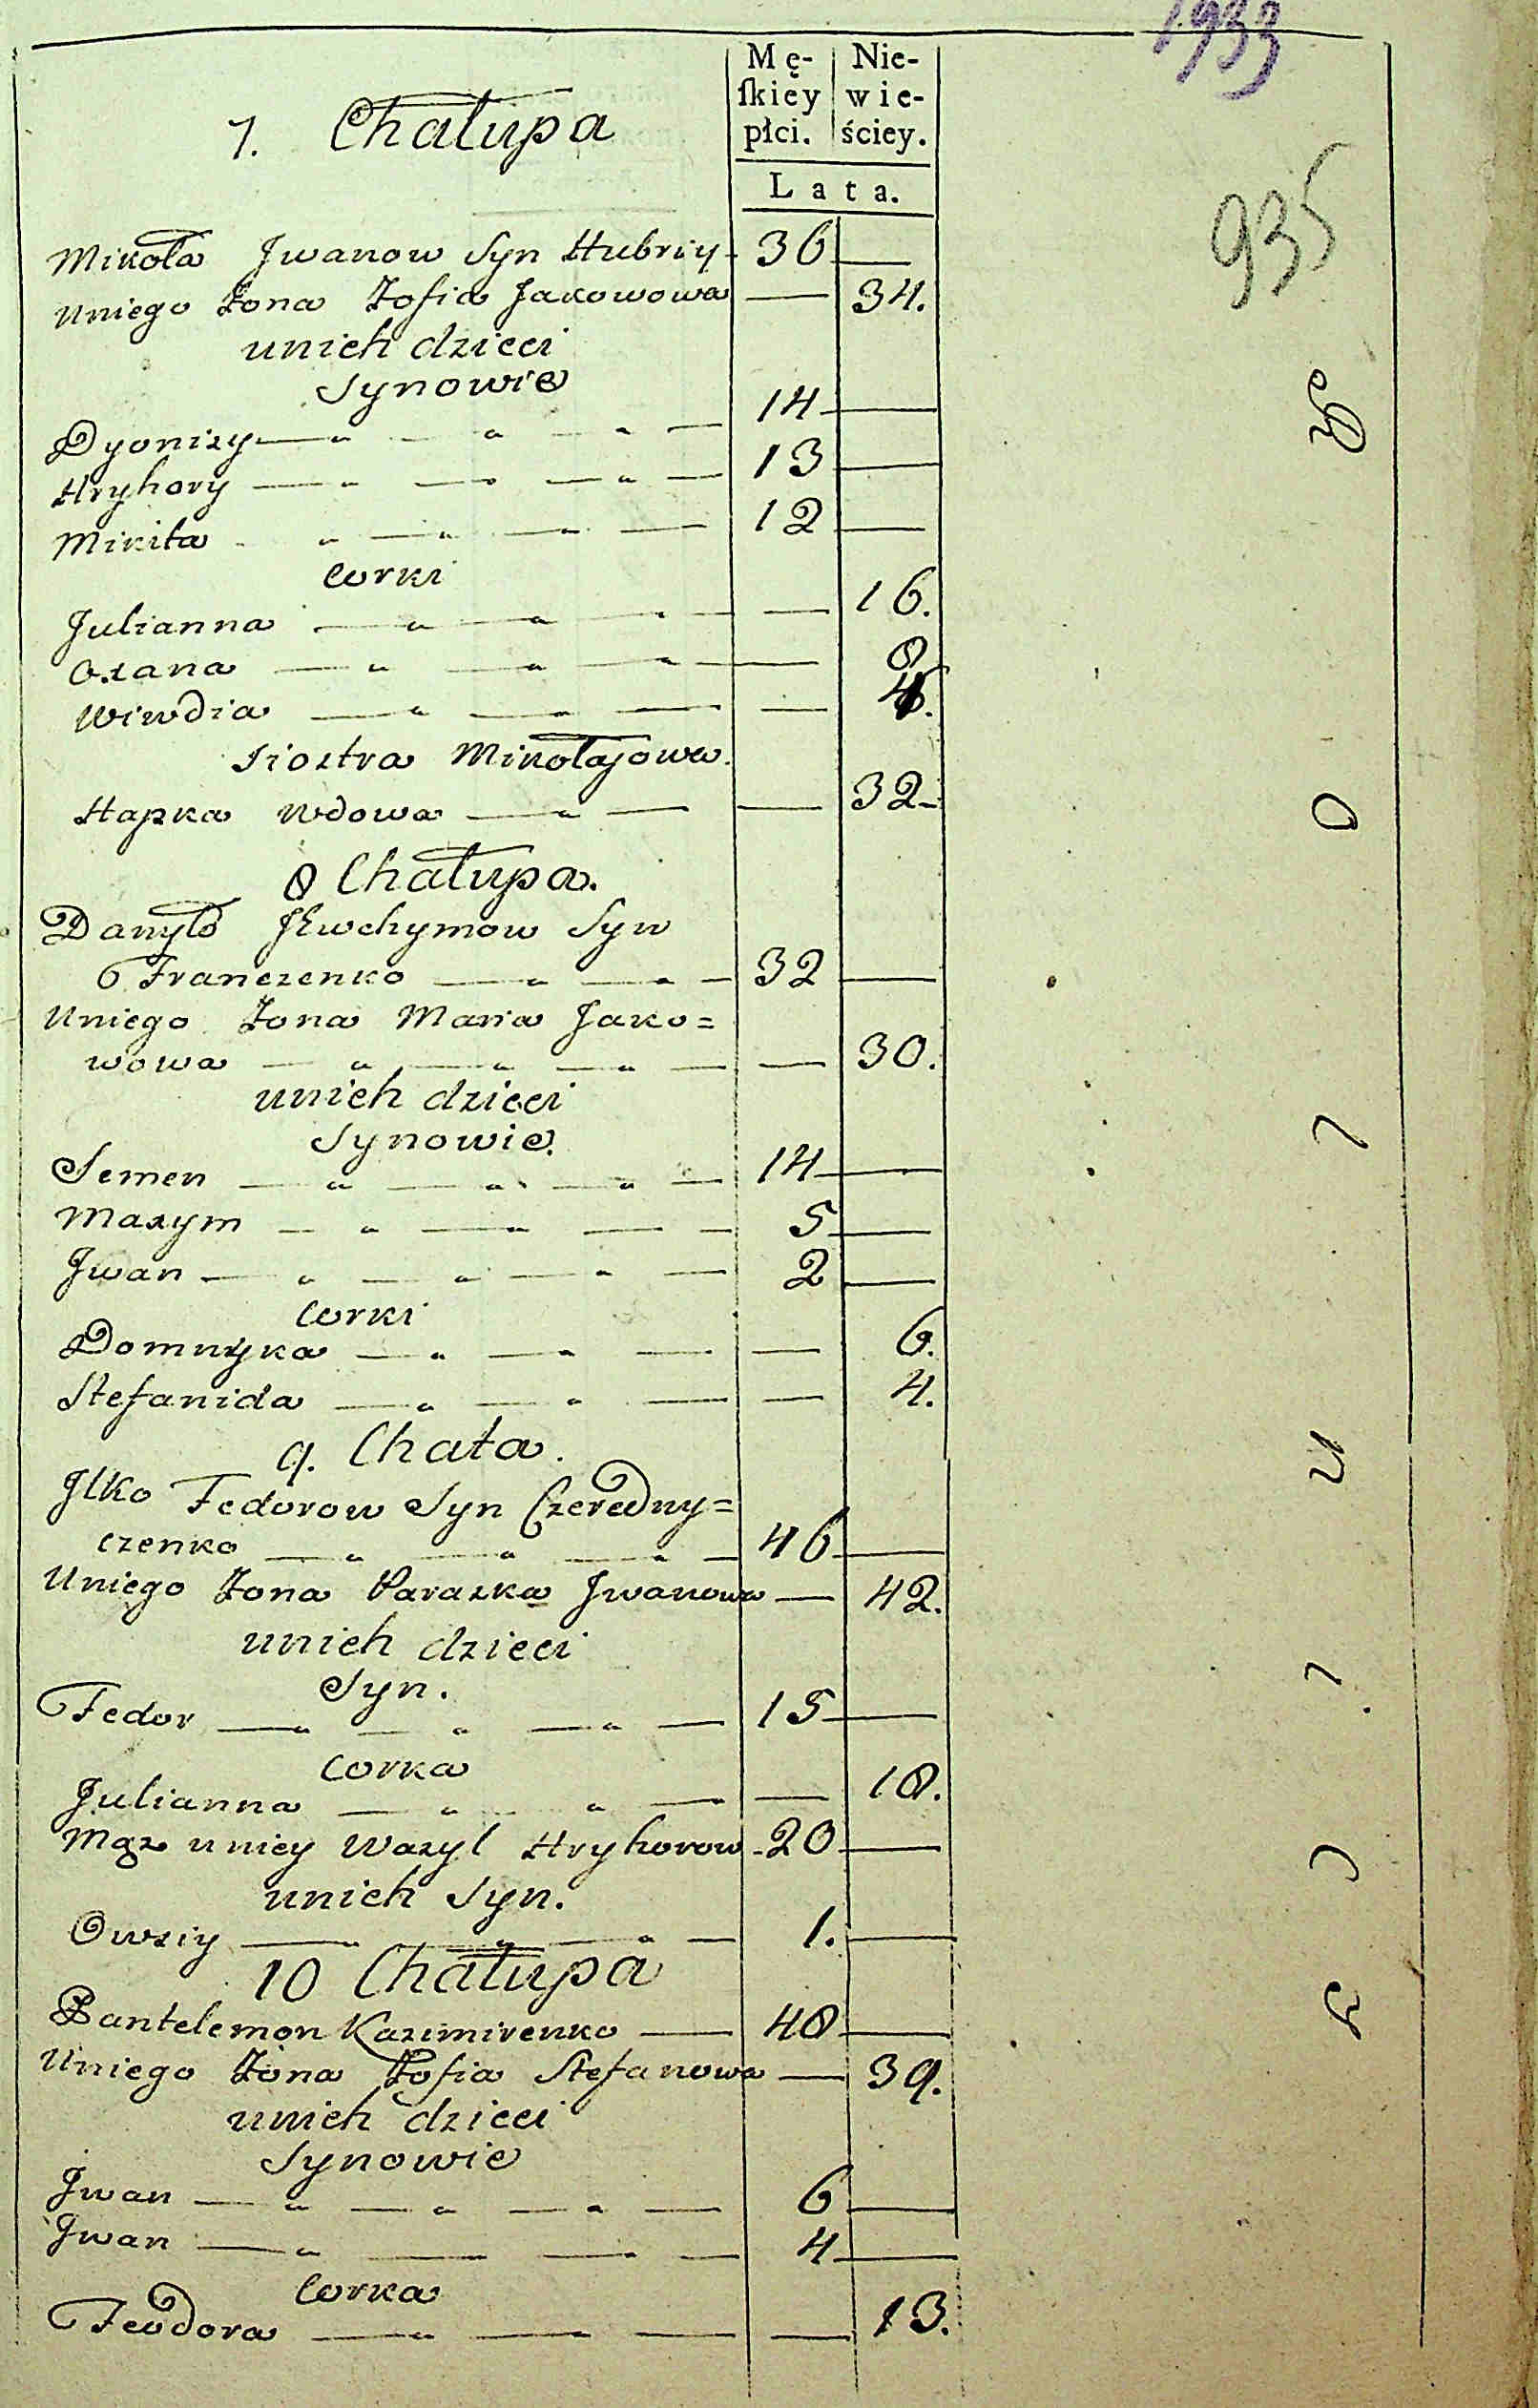 1933
935
Mę- Nie-
ſkiey wie-
płci. ściey.
Lata.
7. Chałupa
Mikoła Jwanow Syn Hubriy 36 —
Uniego Żona Zofia Jakowowa — 34.
unich dzieci
Synowie
Dyonizy 14 —
Hryhory 13 —
Mikita 12 —
Corki
Julianna — 16.
Oxana — 8
Wiwdia —
Siostra Mikołajowa.
Hapka Wdowa — 32
8 Chałupa.
Danyło Jewchymow Syn
Franczenko 32 —
Uniego Żona Maria Jako=
wowa — 30.
unich dzieci
Synowie.
Semen 14 —
Maxym 5 —
Jwan 2 —
Corki
Domnyka — 6.
Stefanida — 4.
9. Chata.
Jlko Fedorow Syn Czeredny=
czenko 46 —
Uniego Żona Paraska Jwanowa — 42.
unich dzieci
Syn.
Fedor 15 —
Corka
Julianna — 18.
Mąż uniey Wasyl Hryhorow 20 —
unich Syn.
Owsiy 1. —
10 Chałupa
Pantelemon Kazimirenko 48 —
Uniego Żona Zofia Stefanowa — 39.
unich dzieci
Synowie
Jwan 6 —
Jwan 4 —
Corka
Feodora — 13.